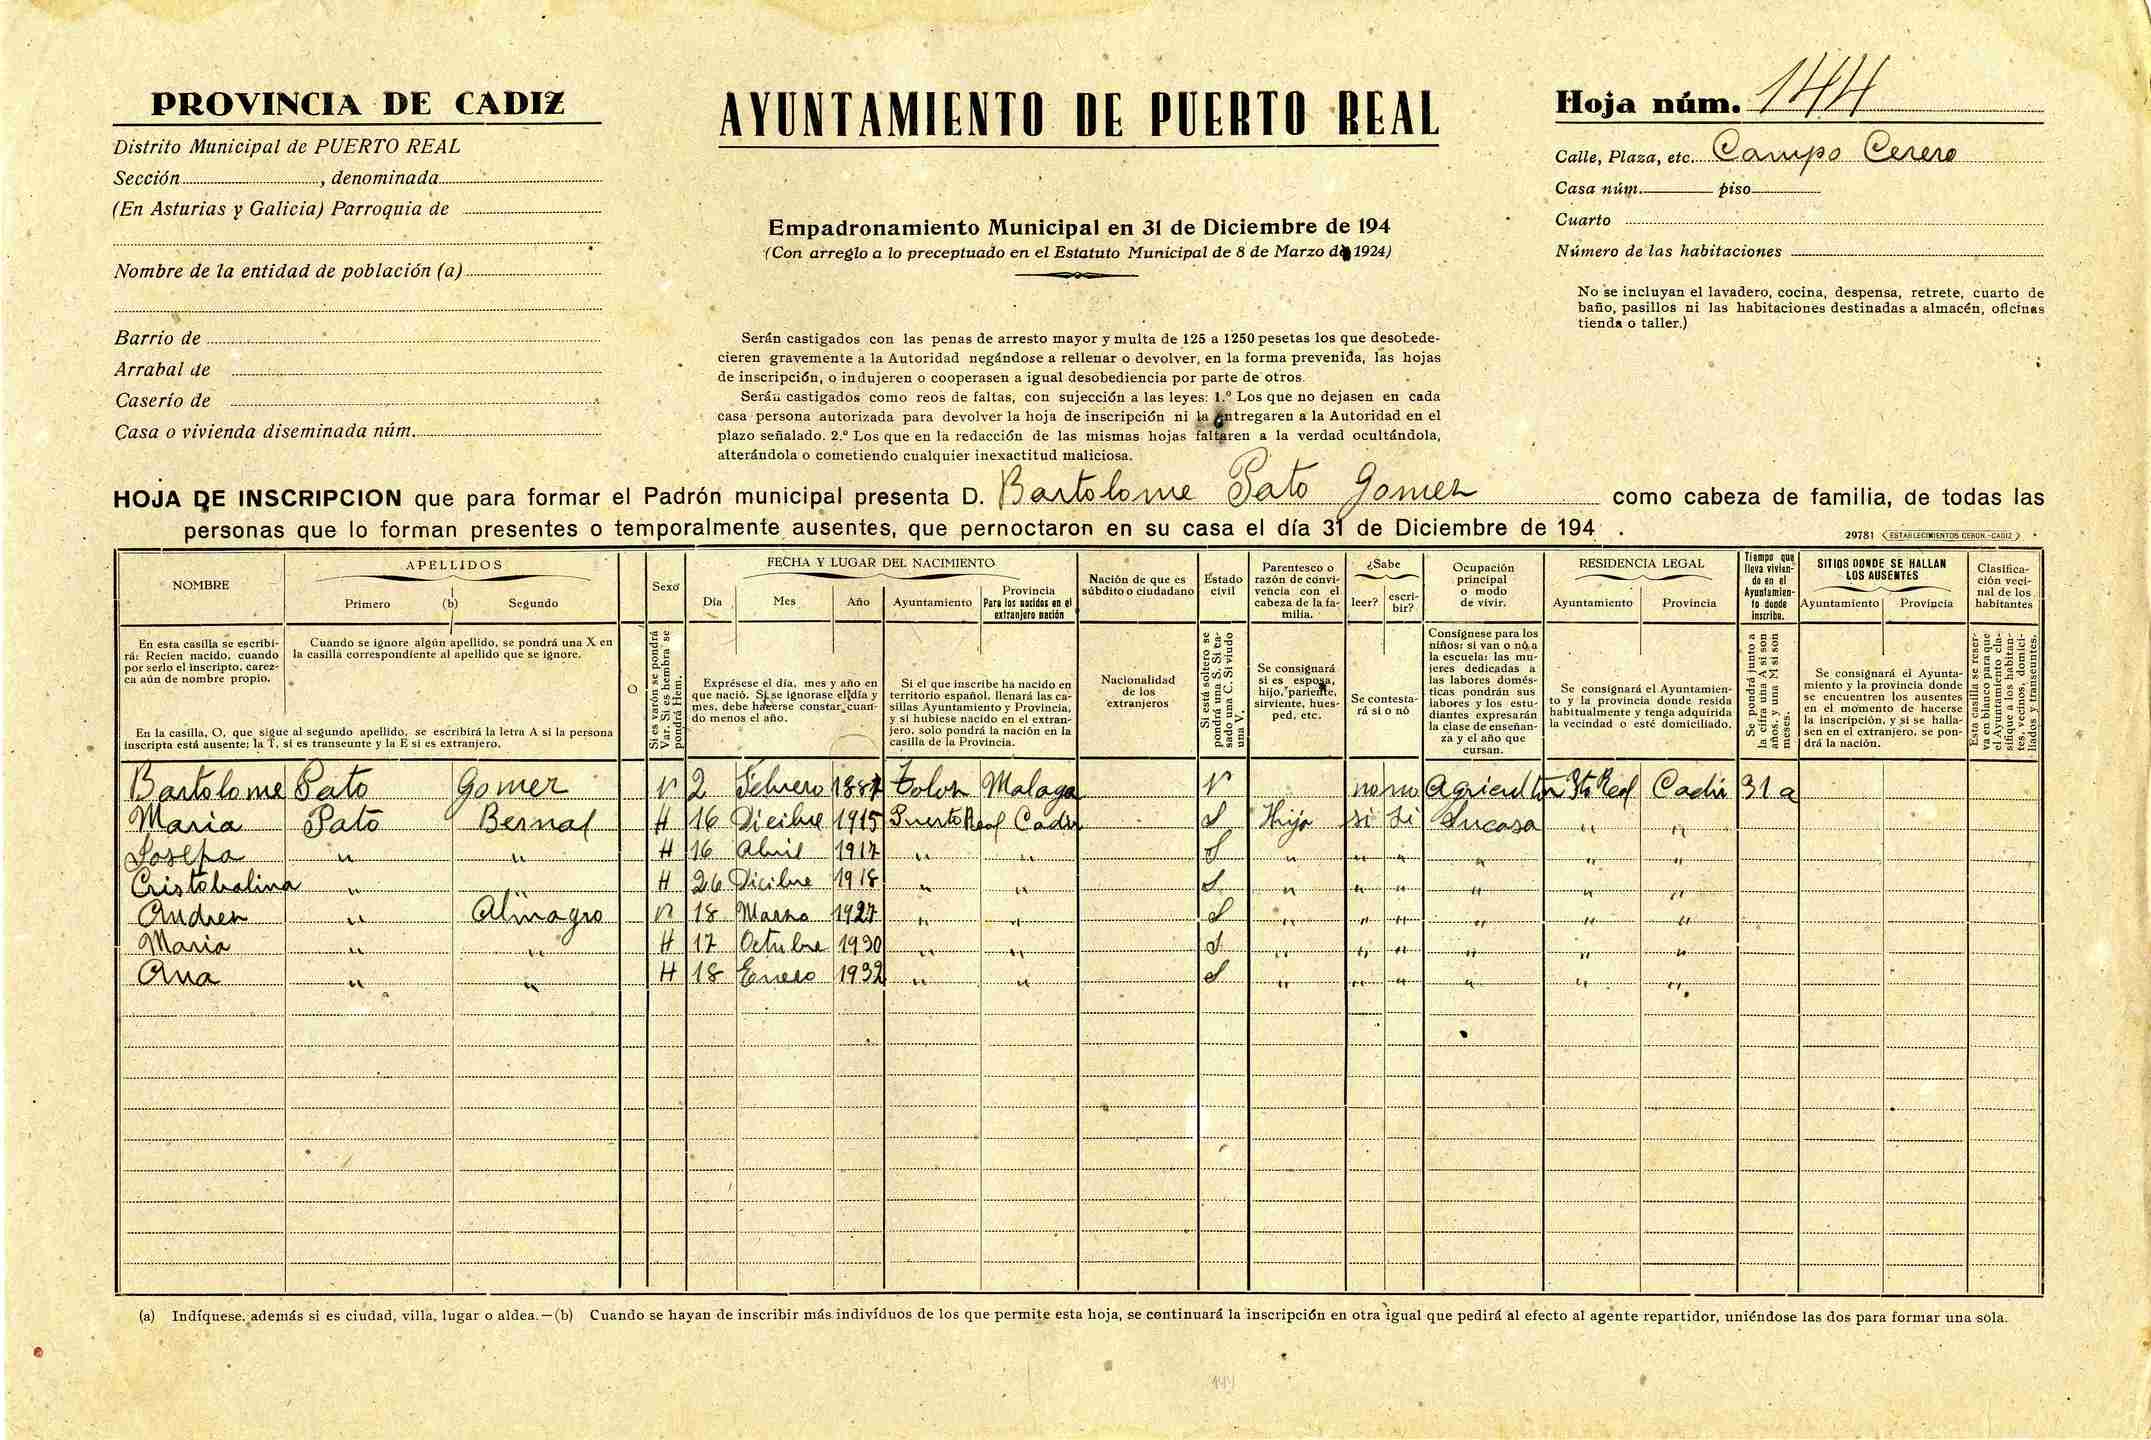 PROVINCIA DE CADIZ
Distrito Municipal de PUERTO REAL
Sección , denominada
(En Asturias y Galicia) Parroquia de
Nombre de la entidad de población (a)
Barrio de
Arrabal de
Caserío de
Casa o vivienda diseminada núm.
AYUNTAMIENTO DE PUERTO REAL
Empadronamiento Municipal en 31 de Diciembre de 194
(Con arreglo a lo preceptuado en el Estatuto Municipal de 8 de Marzo de 1924)
Serán castigados con las penas de arresto mayor y multa de 125 a 1250 pesetas los que desobede-
cieren gravemente a la Autoridad negándose a rellenar o devolver, en la forma prevenida, las hojas
de inscripción, o indujeren o cooperasen a igual desobediencia por parte de otros.
Serán castigados como reos de faltas, con sujección a las leyes: 1.º Los que no dejasen en cada
casa persona autorizada para devolver la hoja de inscripción ni la entregaren a la Autoridad en el
plazo señalado. 2.º Los que en la redacción de las mismas hojas faltaren a la verdad ocultándola,
alterándola o cometiendo cualquier inexactitud maliciosa.
Hoja núm. 144
Calle, Plaza, etc. Campo Cerero
Casa núm. piso
Cuarto
Número de las habitaciones
No se incluyan el lavadero, cocina, despensa, retrete, cuarto de
baño, pasillos ni las habitaciones destinadas a almacén, oficinas
tienda o taller.)
HOJA DE INSCRIPCION que para formar el Padrón municipal presenta D. Bartolome Pato Gomez como cabeza de familia, de todas las
personas que lo forman presentes o temporalmente ausentes, que pernoctaron en su casa el día 31 de Diciembre de 194 .
29781 ESTABLECIMIENTOS CERON.-CADIZ
NOMBRE
En esta casilla se escribi-
rá: Recien nacido, cuando
por serlo el inscripto, carez-
ca aún de nombre propio.
APELLIDOS
Primero (b) Segundo
Cuando se ignore algún apellido, se pondrá una X en
la casilla correspondiente al apellido que se ignore.
En la casilla, O, que sigue al segundo apellido, se escribirá la letra A si la persona
inscripta está ausente; la T, si es transeunte y la E si es extranjero.
O
Sexo
Si es varón se pondrá
Var. Si es hembra se
pondrá Hem.
FECHA Y LUGAR DEL NACIMIENTO
Día Mes Año Ayuntamiento
Provincia
Para los nacidos en el
extranjero nación
Exprésese el día, mes y año en
que nació. Si se ignorase el día y
mes, debe hacerse constar cuan-
do menos el año.
Si el que inscribe ha nacido en
territorio español, llenará las ca-
sillas Ayuntamiento y Provincia,
y si hubiese nacido en el extran-
jero, solo pondrá la nación en la
casilla de la Provincia.
Nación de que es
súbdito o ciudadano
Nacionalidad
de los
extranjeros
Estado
civil
Si está soltero se
pondrá una S. Si ca-
sado una C. Si viudo
una V.
Parentesco o
razón de convi-
vencia con el
cabeza de la fa-
milia.
Se consignará
si es esposa,
hijo, pariente,
sirviente, hues-
ped, etc.
¿Sabe
leer? escri-
bir?
Se contesta-
rá si o nó
Ocupación
principal
o modo
de vivir.
Consígnese para los
niños: si van o nó a
la escuela: las mu-
jeres dedicadas a
las labores domés-
ticas pondrán sus
labores y los estu-
diantes expresarán
la clase de enseñan-
za y el año que
cursan.
RESIDENCIA LEGAL
Ayuntamiento Provincia
Se consignará el Ayuntamien-
to y la provincia donde resida
habitualmente y tenga adquirida
la vecindad o esté domiciliado.
Tiempo que
lleva vivien-
do en el
Ayuntamien-
to donde
inscribe.
Se pondrá junto a
la cifra una A si son
años, y una M si son
meses.
SITIOS DONDE SE HALLAN
LOS AUSENTES
Ayuntamiento Provincia
Se consignará el Ayunta-
miento y la provincia donde
se encuentren los ausentes
en el momento de hacerse
la inscripción, y si se halla-
sen en el extranjero, se pon-
drá la nación.
Clasifica-
ción veci-
nal de los
habitantes
Esta casilla se reser-
va en blanco para que
el Ayuntamiento cla-
sifique a los habitan-
tes, vecinos, domici-
liados y transeuntes.
Bartolome Pato Gomez V 2 Febrero 1887 Tolox Malaga V no no Agricultor Pto Real Cadiz 31 a
Maria Pato Bernal H 16 Dicibre 1915 Puerto Real Cadiz S Hija si si Sucasa " "
Josefa " " H 16 Abril 1917 " " S " " " " " "
Cristobalina " " H 26 Dicibre 1918 " " S " " " " " "
Andres " Almagro V 18 Marzo 1927 " " S " " " " " "
Maria " " H 17 Octubre 1930 " " S " " " " " "
Ana " " H 18 Enero 1932 " " S " " " " " "
(a) Indíquese, además si es ciudad, villa, lugar o aldea.—(b) Cuando se hayan de inscribir más indivíduos de los que permite esta hoja, se continuará la inscripción en otra igual que pedirá al efecto al agente repartidor, uniéndose las dos para formar una sola.
144